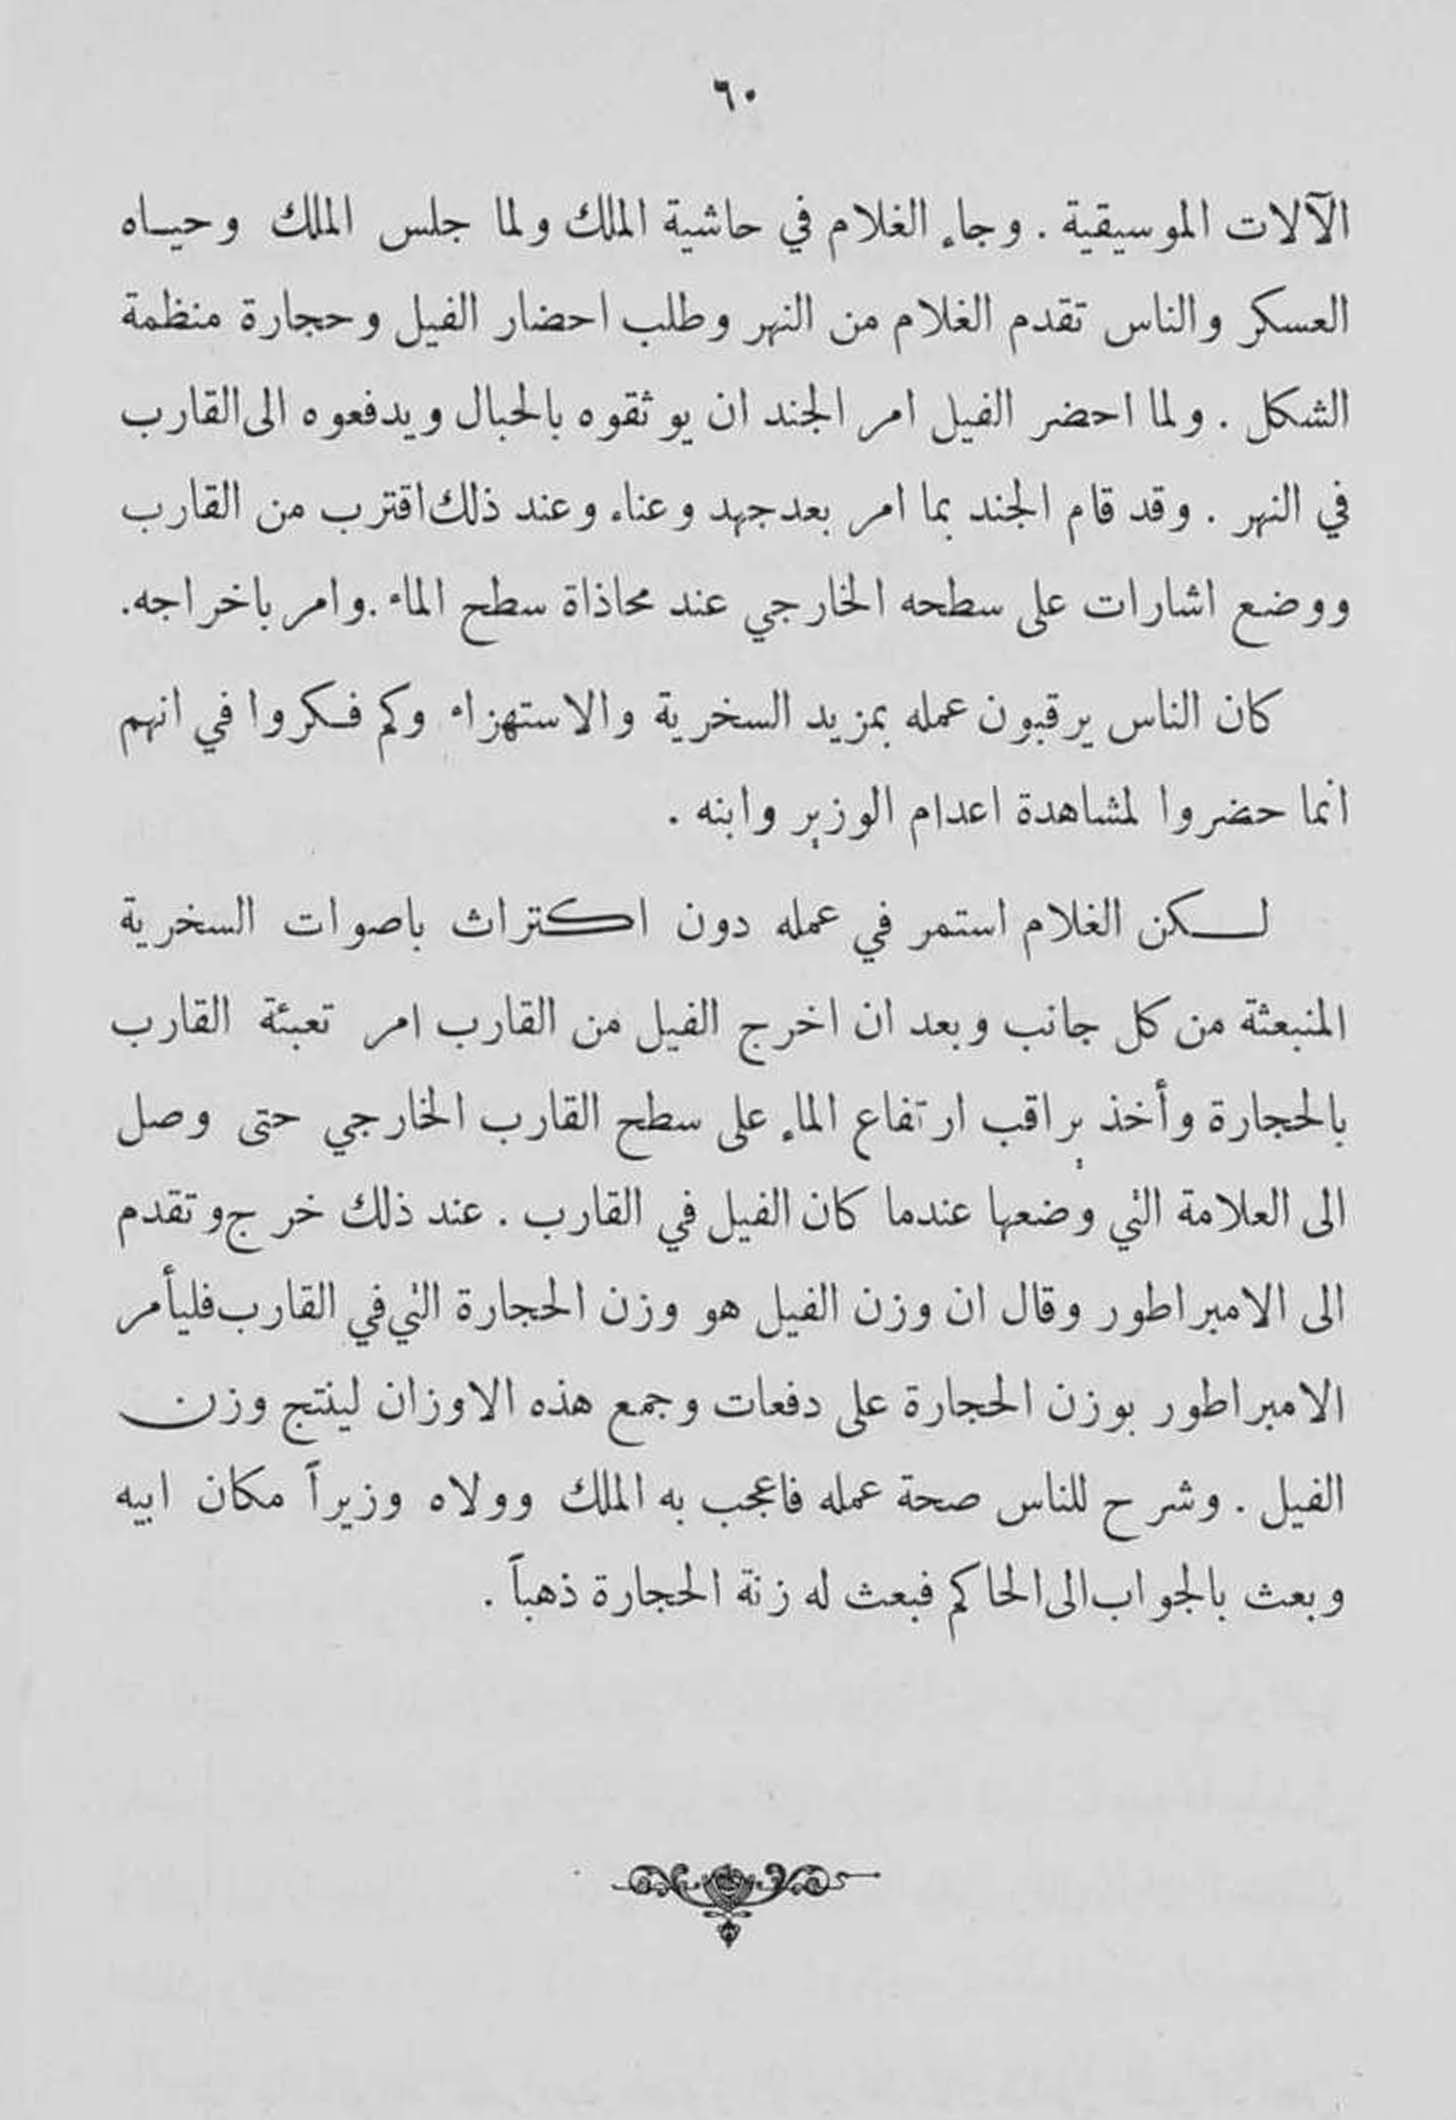 ٦٠
الآلات الموسيقية . وجاء الغلام في حاشية الملك ولما جلس الملك وحياه
العسكر والناس تقدم الغلام من النهر وطلب احضار الفيل وحجارة منظمة
الشكل . ولما احضر الفيل امر الجند ان يوثقوه بالحبال ويدفعوه الى القارب
في النهر . وقد قام الجند بما امر بعد جهد وعناء وعند ذلك اقترب من القارب
ووضع اشارات على سطحه الخارجي عند محاذاة سطح الماء . وامر باخراجه.
كان الناس يرقبون عمله بمزيد السخرية والاستهزاء وكم فكروا في انهم
انما حضروا لمشاهدة اعدام الوزير وابنه .
لكن الغلام استمر في عمله دون اكتراث باصوات السخرية
المنبعثة من كل جانب وبعد ان اخرج الفيل من القارب امر تعبئة القارب
بالحجارة وأخذ يراقب ارتفاع الماء على سطح القارب الخارجي حتى وصل
الى العلامة التي وضعها عندما كان الفيل في القارب . عند ذلك خرج وتقدم
الى الامبراطور وقال ان وزن الفيل هو وزن الحجارة التي في القارب فليأمر
الامبراطور بوزن الحجارة على دفعات وجمع هذه الاوزان لينتج وزن
الفيل . وشرح للناس صحة عمله فاعجب به الملك وولاه وزيراً مكان ابيه
وبعث بالجواب الى الحاكم فبعث له زنة الحجارة ذهباً .